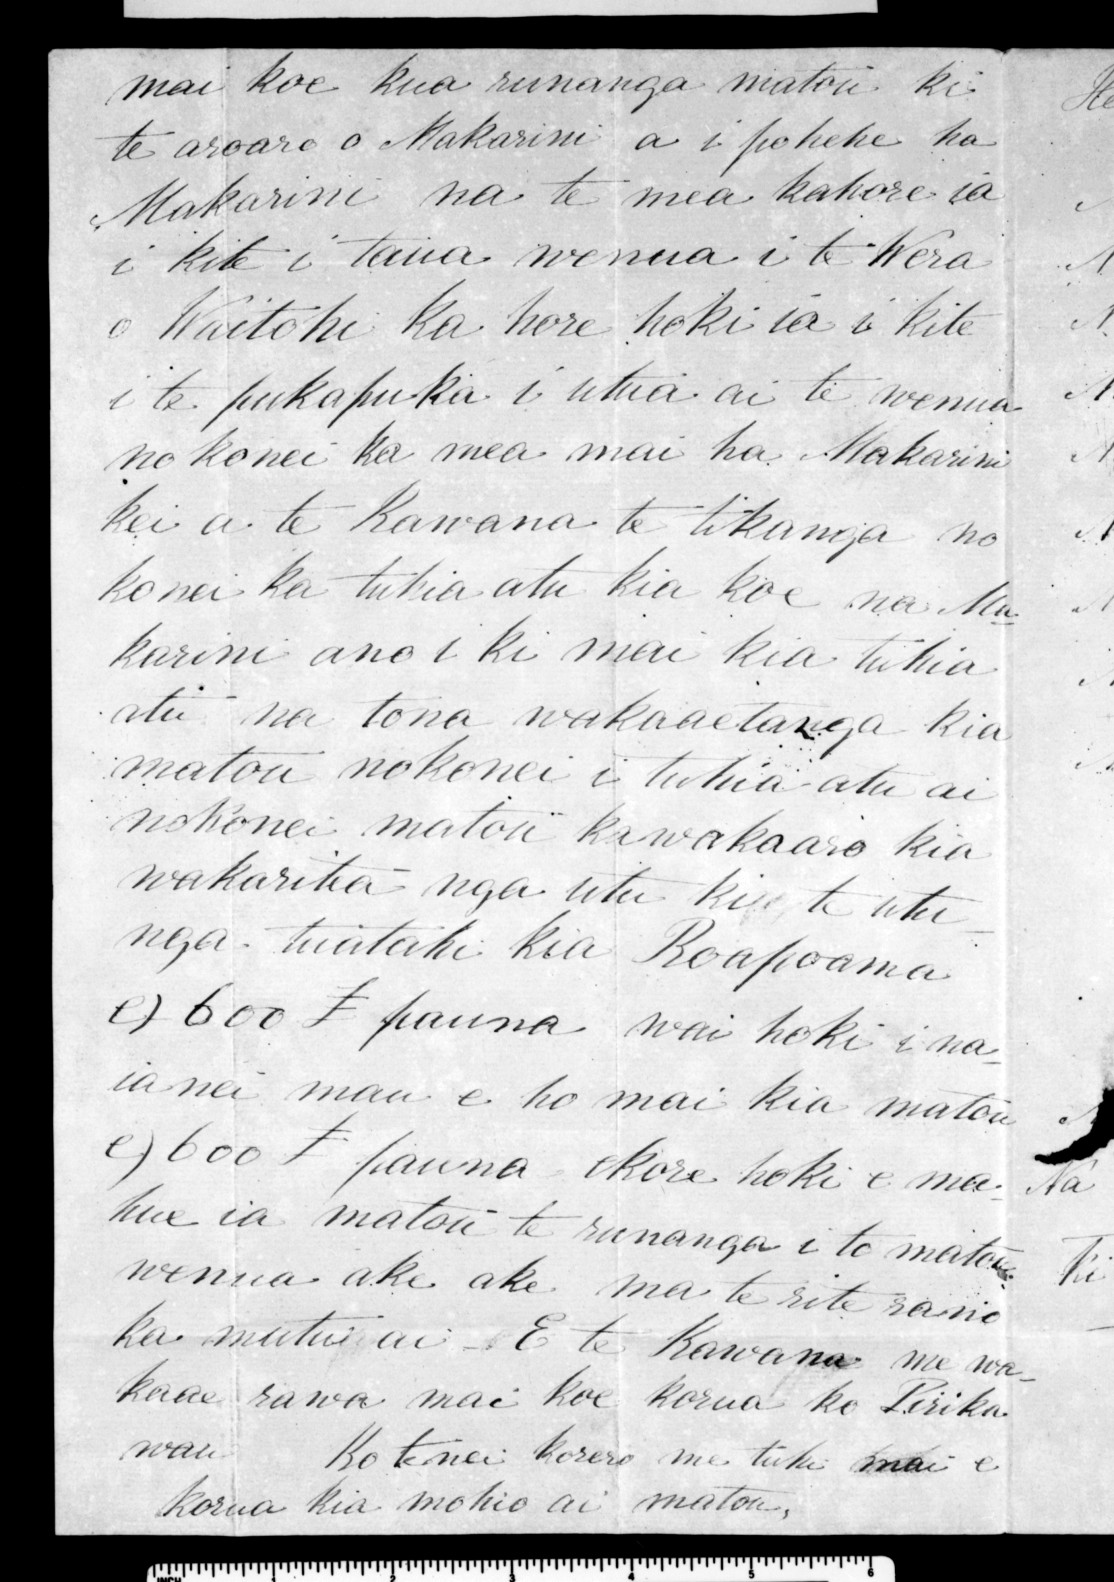 mai koe kua runanga matou ki
te aroaro o Makarini a i pohehe ha
Makarini na te mea kahore ia
i kite i taua wenua i te Wera
o Waitohi Ka hore hoki ia i kite
i te pukapuka i utua ai te wenua
no konei ka mea mai ha Makarini
kei a te Kawana te tikanga no
konei ka tuhia atu kia koe na Ma-
karini ano i ki mai kia tuhia
atu na tona wakaaetanga kia
matou nokonei i tuhia atu ai
nokonei matou ka wakaaro kia
wakaritea nga utu ki te utu-
nga tuatahi kia Roapoama
e) 600 £ pauna wai hoki i na-
ianei mau e ho mai kia matou
e) 600 £ pauna ekore hoki e ma-
hue ia matou te runanga i to matou
wenua ake ake ma te rite rano
ka mutu ai - E te Kawana me wa-
kaae rawa mai koe korua ko Pirika
wau Ko tenei korero me tuhi mai e
korua kia mohio ai matou,
He
Na
Ki